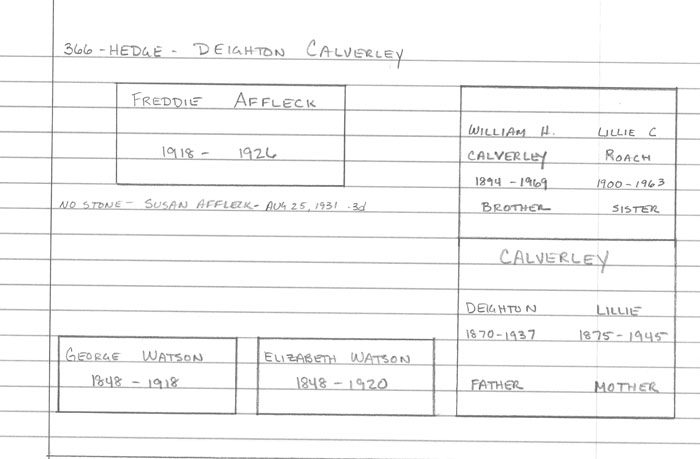 366 - HEDGE - DEIGHTON CALVERLEY
FREDDIE AFFLECK
1918 - 1926
NO STONE - SUSAN AFFLECK - AUG 25, 1931 - 3d
WILLIAM H. LILLIE C
CALVERLEY ROACH
1894 - 1969 1900 - 1963
BROTHER SISTER
CALVERLEY
DEIGHTON LILLIE
1870 - 1937 1875 - 1945
FATHER MOTHER
GEORGE WATSON
1848 - 1918
ELIZABETH WATSON
1848 - 1920